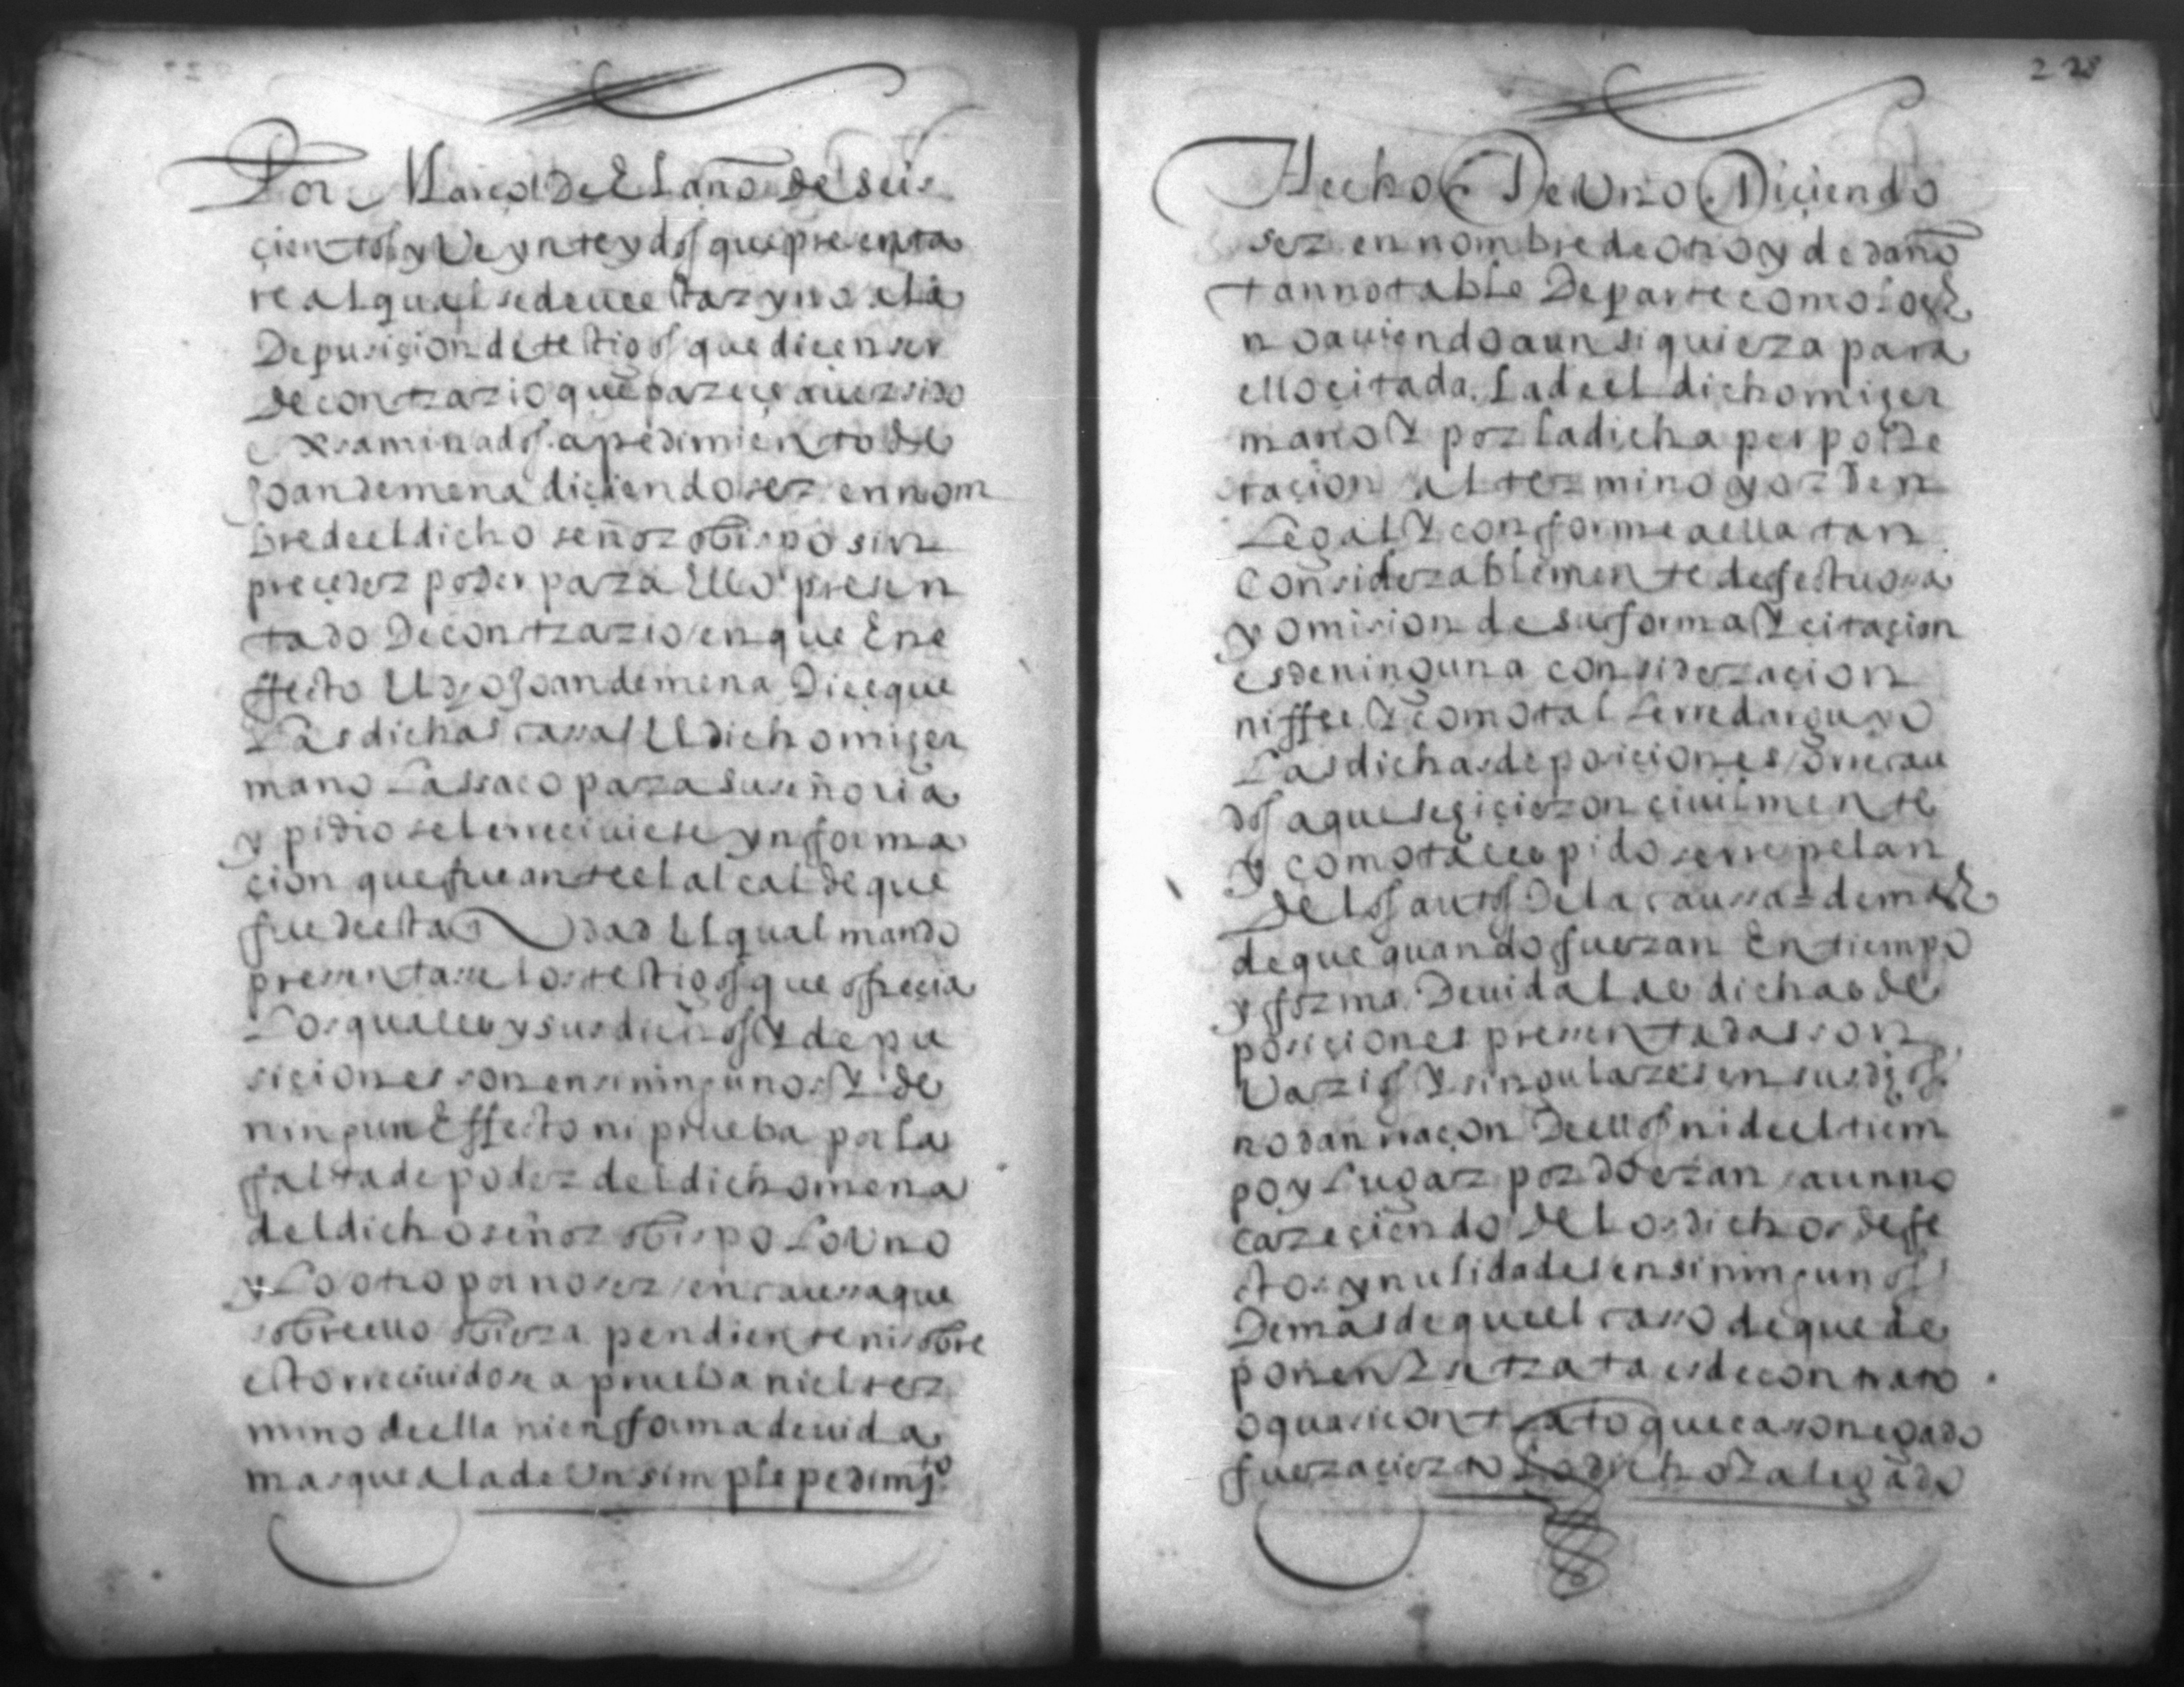 Por Março De El año de seis
çientos y Veynte y dos que presenta
re al qual se deue estar y no a la
Depusiçion de testigos que dicen ser
de contrario que pareçe auer sido
exsaminados a pedimiento de
Joan de mena diçiendo ser en nom
bre de el dicho señor obispo sin
preçeder poder para Ello presen
tado De contrario en que En e
ffecto El Joan de mena Diçe que
Las dichas cassas El dicho mi ger
mano La ssaco para su señoria
y pidio se le rreciuiese ynforma
çion que fue ante el alcalde que
fue de esta çiudad El qual mando
pressentasse los testigos que ofreçia
Los quales y sus dichos Y depu
siçiones son en si ningunos Y de
ningun Effecto ni prueba por la
falta de poder del dicho mena
del dicho señor obispo Lo Vno
y Lo otro por no ser en caussa que
sobre ello obiera pendiente ni sobre
esto rreciuidose a prueba ni el ter
mino de ella ni en forma deuida
mas que a la de Vn simple pedimjto
228
Hecho De Vno Diçiendo
ser en nombre de otro y de daño
tan notable De parte como lo es
no auiendo aun siquiera para
ello citada La de el dicho mi ger
mano Y por la dicha per
taçion al termino y orden
Legal Y conforme a ella tan
Considerablemente defectuosa
y omision de su forma Y citaçion
es de ninguna consideraçion
ni ffee Y como tal
Las dichas deposiçiones
dos a que se hiçieron çiuilmente
y como tales pido se rrepelan
De los autos De la caussa = demas
de que quando fueran En tiempo
y forma Deuida Las dichas de
posiçiones pressentadas son
Varios Y singulares en sus dichos
no dan rraçon De ellos ni de el tiem
po y Lugar por do eran aun no
careçiendo De Los dichos defe
ctos y nulidades en si ningunos
Demas de que el casso de que de
ponen Y se trata es de contrato
o quasi contrato que caso negado
fuera çierto Lo dicho Y alegado